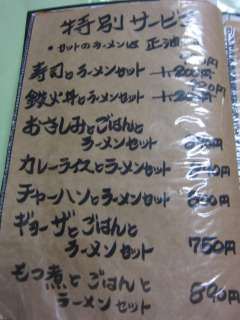 特別サービス
・セットのラーメンは 正油
寿司とラーメンセット 1,200円
鉄火丼とラーメンセット 1,200円
おさしみとごはんと
ラーメンセット
カレーライスとラーメンセット
チャーハンとラーメンセット
ギョーザとごはんと
ラーメンセット 750円
もつ煮とごはんと
ラーメンセット 890円